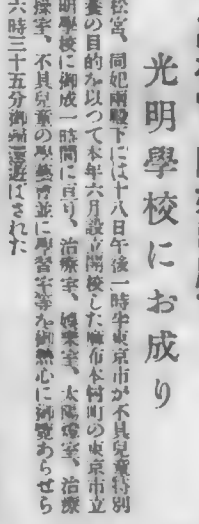 光明學校にお成り
松宮、同妃兩殿下には十八日午後一時半東京市が不具兒童特別
養の目的を以つて本年六月設立開校した麻布本村町の東京市立
明學校に御成一時間に亘り、治療室、娯樂室、太陽燈室、治療
操室、不具兒童の學藝會並に學習字等を御熱心に御覽あらせら
六時三十五分御歸還遊ばされた